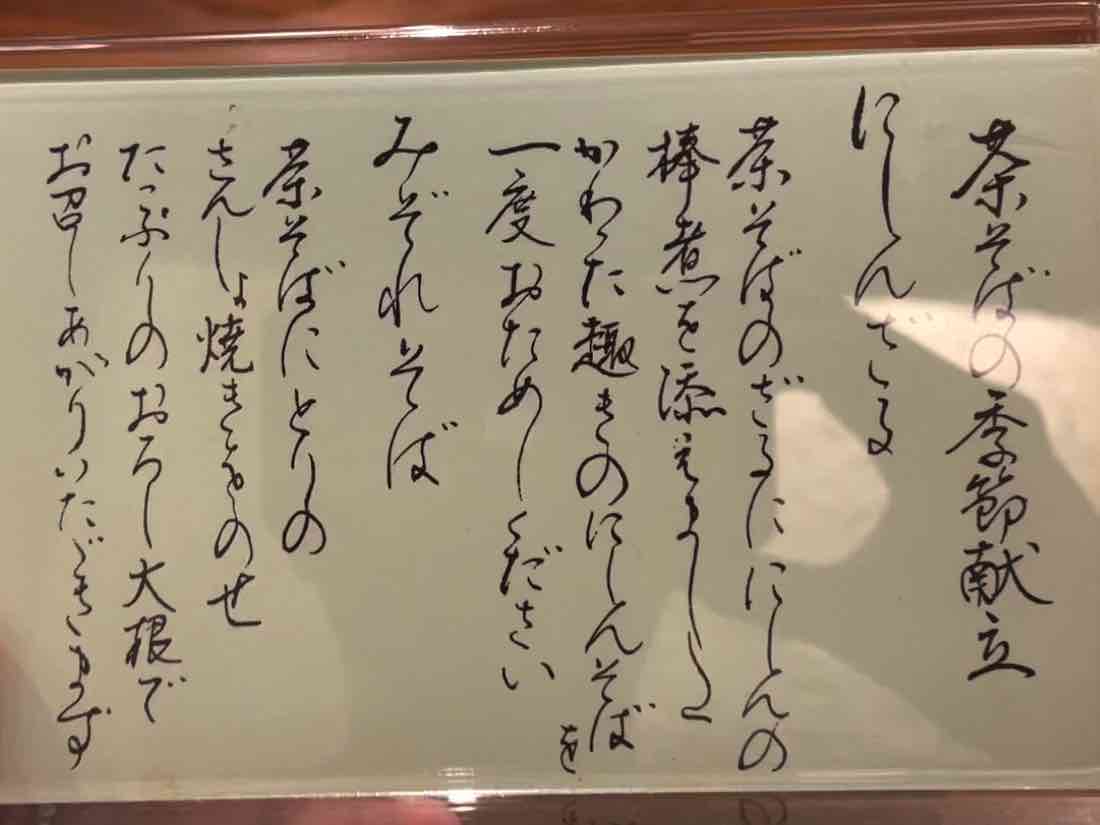 茶そばの季節献立
にしんざる
茶そばのざるににしんの
棒煮を添えました
かわった趣きのにしんそばを
一度おためしください
みぞれそば
茶そばにとりの
さんしょ焼きをのせ
たっぷりのおろし大根で
お召しあがりいただきます